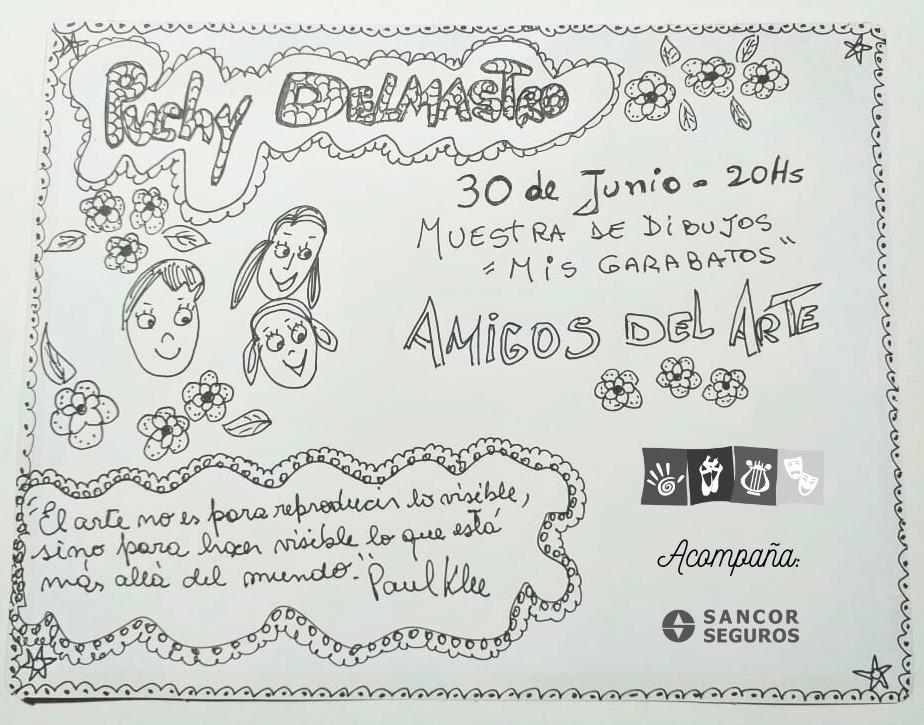 Puchy DELMASTRO
30 de Junio - 20Hs
MUESTRA DE DIBUJOS
"MIS GARABATOS"
AMIGOS DEL ARTE
"El arte no es para reproducir lo visible,
sino para hacer visible lo que está
más allá del mundo." Paul Klee
Acompaña:
SANCOR
SEGUROS